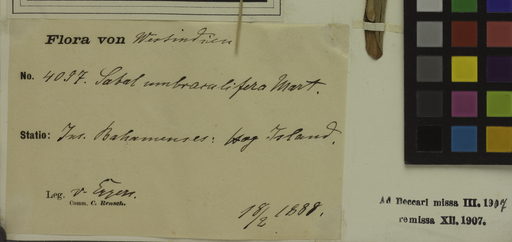 Flora von Westindien
No. 4097. Sabal umbraculifera Mart.
Statio: Ins. Bahamenses: Hog Island.
Leg. v. Eggers.
Comm. C. Rensch.
18/2 1888.
Ad Beccari missa III, 1907
remissa XII, 1907.